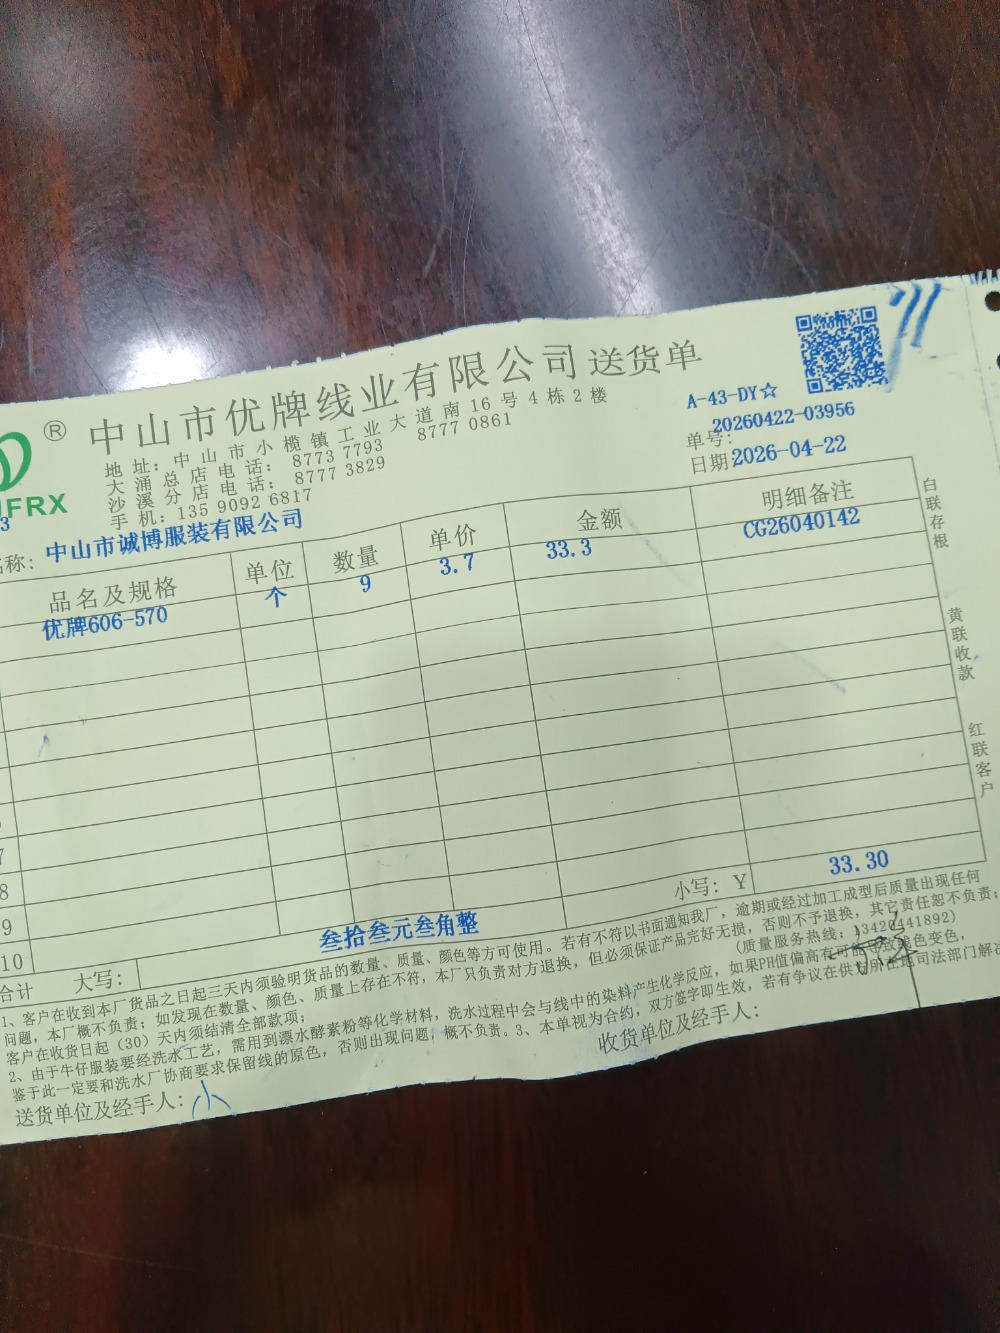 中山市优牌线业有限公司送货单
®
FRX
地址：中山市小榄镇工业大道南16号4栋2楼
大涌总店电话： 8773 7793 8777 0861
沙溪分店电话： 8777 3829
手机：135 9092 6817
A-43-DY☆
单号：20260422-03956
日期：2026-04-22
3
名称：中山市诚博服装有限公司
品名及规格 单位 数量 单价 金额 明细备注
优牌606-570 个 9 3.7 33.3 CG26040142
7
8
9
10
合计 大写： 叁拾叁元叁角整 小写：Y 33.30
白联存根
黄联收款
红联客户
1、客户在收到本厂货品之日起三天内须验明货品的数量、质量、颜色等方可使用。若有不符以书面通知我厂，逾期或经过加工成型后质量出现任何
问题，本厂概不负责；如发现在数量、颜色、质量上存在不符，本厂只负责对方退换，但必须保证产品完好无损，否则不予退换，其它责任恕不负责；
客户在收货日起（30）天内须结清全部款项；（质量服务热线：13420141892）
2、由于牛仔服装要经洗水工艺，需用到漂水酵素粉等化学材料，洗水过程中会与线中的染料产生化学反应，如果PH值偏高有可能导致线色变色，
鉴于此一定要和洗水厂协商要求保留线的原色，否则出现问题，概不负责。3、本单视为合约，双方签字即生效，若有争议在供方所在地司法部门解决
送货单位及经手人：小
收货单位及经手人：